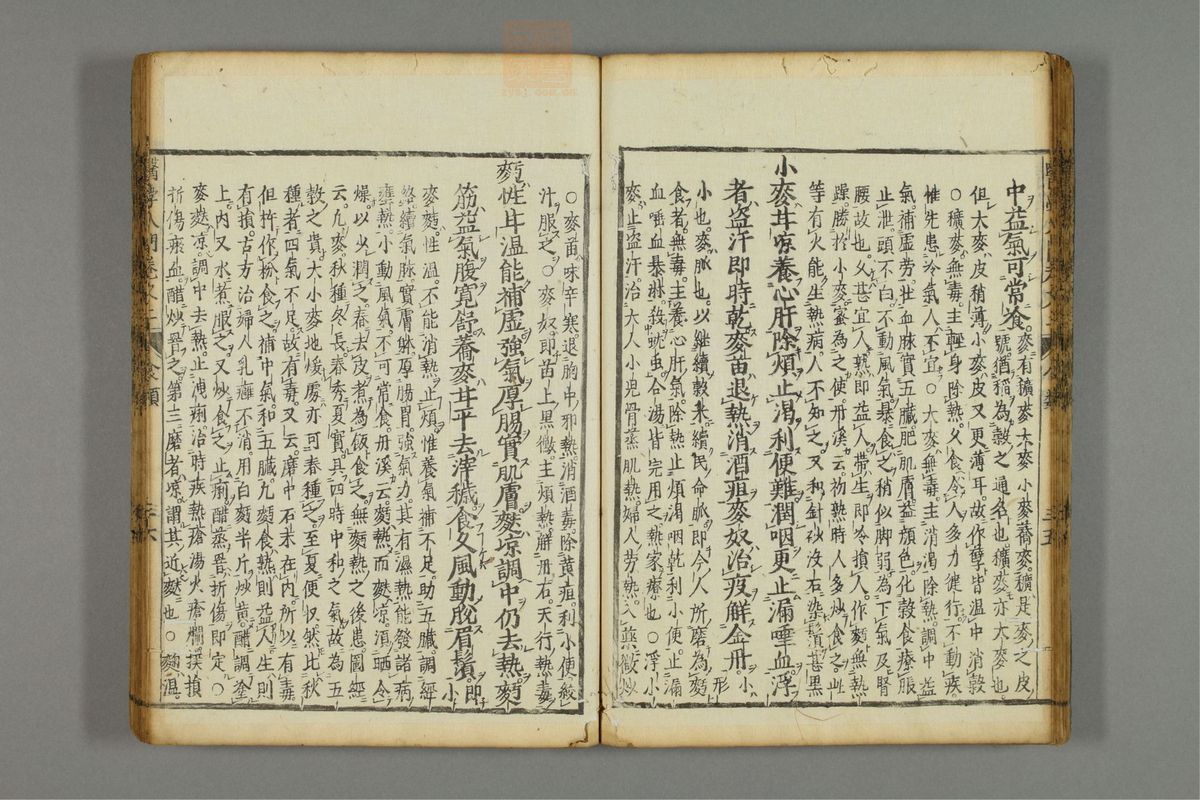 中益氣可常食麥有擴麥大麥小麥蕎麥穬是麥之皮
但大麥皮稍薄小麥皮又更薄耳故作孽皆溫中消穀
○穬麥無毒主輕身除熱久食令人多力健行不動疾
惟先患冷氣人不宜○大麥無毒主消渴除熱調中益
氣補虛勞壯血脉實五臟肥肌膚益顏色化穀食療脹
止泄頭不白不動風氣暴食之稍似脚弱為下氣及腎
腰故也久甚宜人熟即益人帶生即冷損人作麵無熱
躁勝於小麥蜜為之使丹溪云初熟時人多炒食之此
等有火能生熱病人不知之又和針砂沒石染鬚甚黑
小麥甘凉養心肝除煩止渴利便難潤咽更止漏唾血浮
者盗汗即時乾麥苗退熱消酒疸麥奴治疫解金丹小
形
小也麥脉也以繼續穀米續民命脉即今人所磨為麵
食者無毒主養心肝氣除熱止煩渴咽乾利小便止漏
血唾血暴淋殺蚘虫合湯皆完用之熱家療也○浮小
麥止盗汗治大人小児骨蒸肌熱婦人勞熱入藥微炒
○麥苗味辛寒退胸中邪熱消酒毒除黄疸利小便絞
汁服之○麥奴即苗上黒黴主煩熱解丹石天行熱毒
麵性甘温能補虚強氣厚腸實肌膚麩凉調中仍去熱麥
筋益氣腹寛舒蕎麥甘平去滓穢食久風動脫眉鬚即
小
麥麵性溫不能消熱止煩惟養氣補不足助五臟調經
絡續氣脉實膚躰厚腸胃強氣力其有濕熱能發諸病
壅熱小動風氣不可常食丹溪云麵熱而麩凉須晒令
燥以少潤之舂去皮煮為飯食之無麵熱之後患圖經
云凢麥秋種冬長春秀夏實具四時中和之氣故為五
穀之貴大小麥地煖處亦可春種之至夏便収然此秋
種者四氣不足故有毒又云磨中石末在内所以有毒
但杵作粉食之補中氣和五臟凢麵食熟則益人生則
有損古方治婦人乳癰不消用白麵半斤炒黄醋調塗
上内又水煮服之又炒食之止痢醋蒸罨折傷即定○
麥麩凉調中去熱止洩痢治時疾熱瘡湯火瘡爛撲損
折傷瘀血醋炒罨之第三磨者凉謂其近麩也○麴温